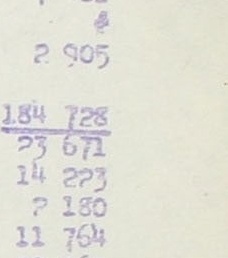 4
2 905
184 728
23 671
14 223
2 180
11 764